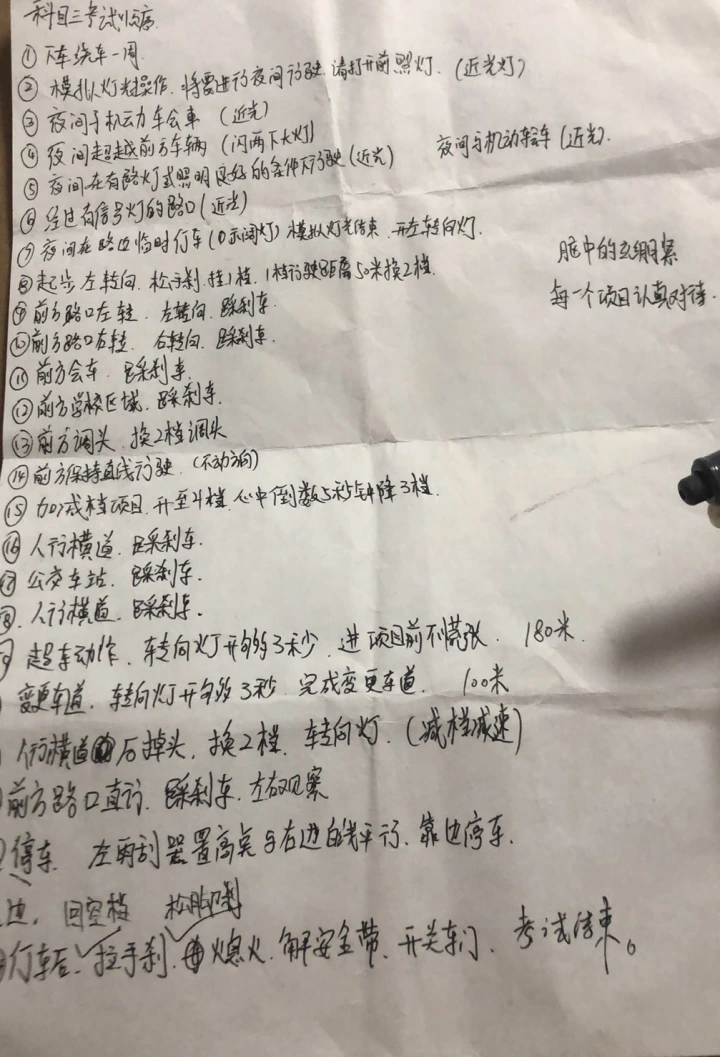 科目三考试顺序
① 下车绕车一周
② 模拟灯光操作. 将要进行夜间行驶. 请打开前照灯. (近光灯)
③ 夜间于机动车会車 (近光)
④ 夜间超越前方车辆 (闪两下大灯) 夜间与机动车会车 (近光).
⑤ 夜间在有路灯或照明良好的条件下行驶 (近光)
⑥ 经过有信号灯的路口 (近光)
⑦ 夜间在路边临时停车 (示阔灯) 模拟灯光结束. 开左转向灯.
⑧ 起步 左转向. 松手刹. 挂1档. 1档行驶距离50米换2档.
⑨ 前方路口左转. 左转向. 踩刹车.
⑩ 前方路口右转. 右转向. 踩刹车.
每一个项目认真对待.
⑪ 前方会车. 踩刹车.
⑫ 前方学校区域. 踩刹车.
⑬ 前方调头. 换2档调头
⑭ 前方保持直线行驶. (不动方向)
⑮ 加减档项目. 升至4档. 心中倒数5秒钟降3档.
⑯ 人行横道. 踩刹车.
公交车站. 踩刹车.
人行横道. 踩刹车.
超车动作. 转向灯开够3秒. 进项目前不慌张. 180米.
变更车道. 转向灯开够3秒. 完成变更车道. 100米
人行横道后掉头. 换2档. 转向灯. (减档减速)
前方路口直行. 踩刹车. 左右观察
停车. 左雨刮器置高点与右边白线平行. 靠边停车.
边. 回空档 松脚刹
停车后. 拉手刹. 熄火. 解安全带. 开关车门. 考试结束。